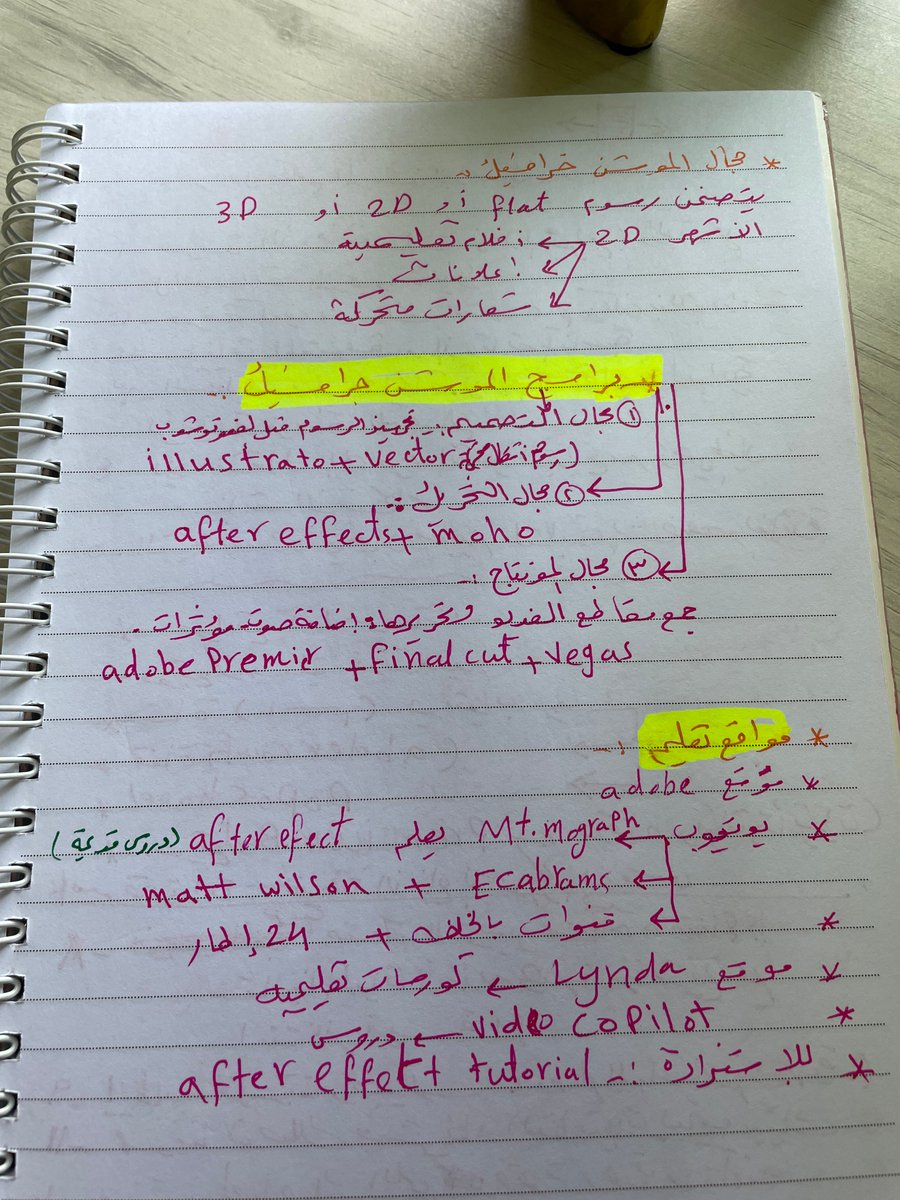 * مجال الموشن جرافيك :ـ
يتضمن رسوم flat أو 2D أو 3D
الأشهر 2D ← أفلام تعليمية
إعلانات
شعارات متحركة
* برامج الموشن جرافيك :ـ
① مجال التصميم :ـ تجهيز الرسوم قبل
illustrato + vector (رسم
② مجال التحريك :ـ
after effects + moho
③ مجال المونتاج :ـ
جمع مقاطع الفديو وتحريرها + إضافة صوت مؤثرات .
adobe Premir + final cut + vegas
* مواقع تعليم :ـ
* موقع adobe
* يوتيوب ← Mt.mograph يعلم after efect (دروس قديمة)
matt wilson + ECabrams
* قنوات + 24 إطار
* موقع Lynda ← كورسات تعليميه
* video coPilot ← دروس
* للاستزادة :ـ after effect tutorial